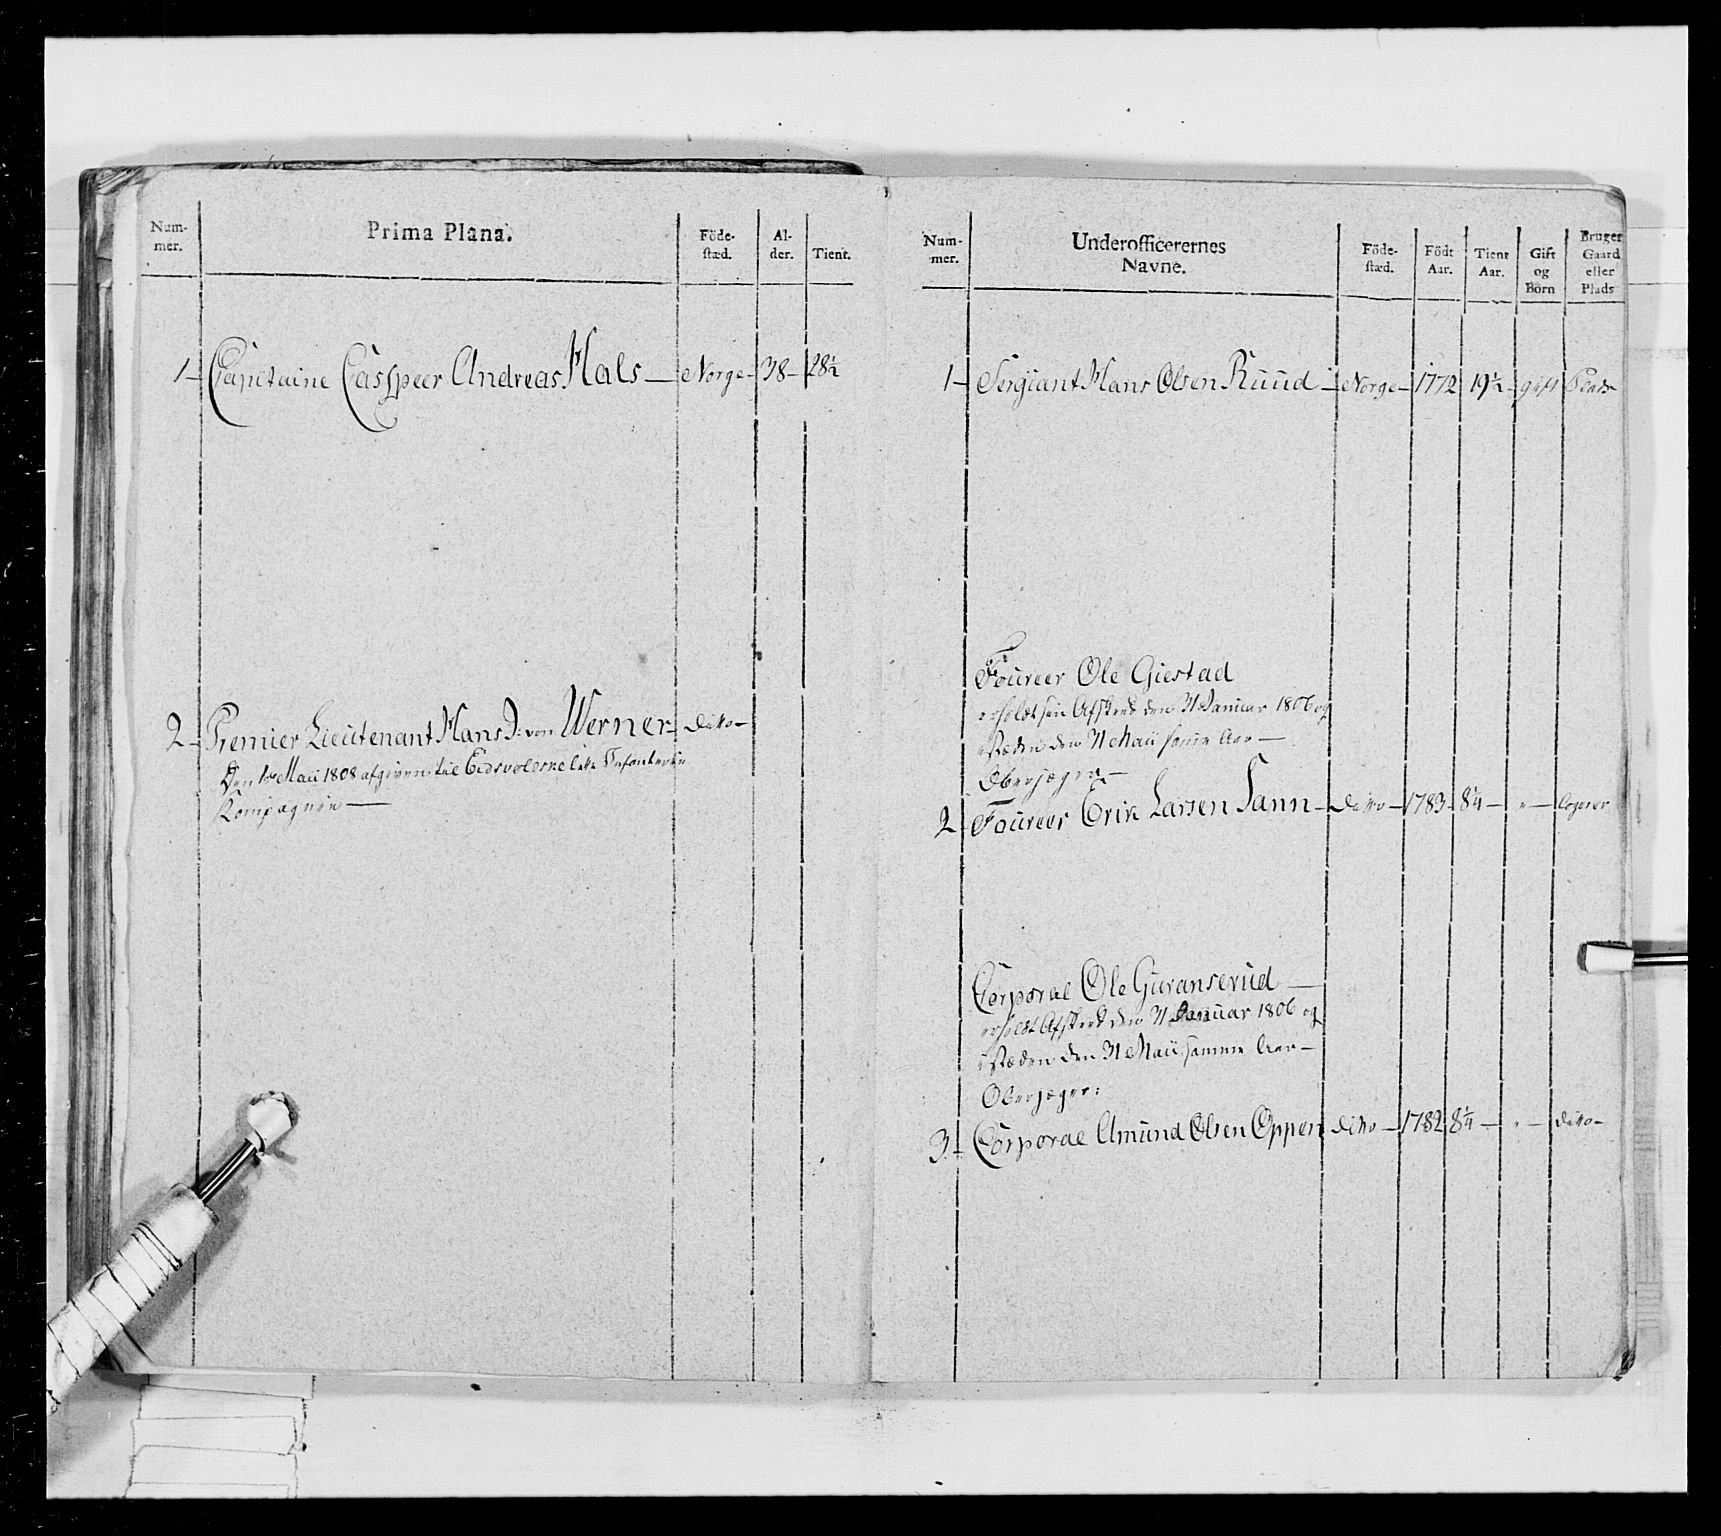 Num-
mer.
Prima Plana.
Föde-
stæd.
Al-
der.
Tient.
1 Capitaine Casper Andreas Hals Norge 38 28½
2 Premier Lieutenant Hans D: von Werner Ditto
Den 1te Maii 1808 afgiven til Eidsvoldske lette Infanterie
Kompagnie
Num-
mer.
Underofficerernes
Navne.
Föde-
stæd.
Födt
Aar.
Tient
Aar.
Gift
og
Börn
Bruger
Gaard
eller
Plads
1 Sergiant Hans Olsen Ruud Norge 1772 19½ gift Plads
Foureer Ole Giestad
erholdt sin Afskeed den 31 Januar 1806 og
istæden den 31 Maii samme Aar
Oberjæger
2 Foureer Erik Larsen Sann Ditto 1783 8¼ " Logerer
Corporal Ole Guranserud
erholdt Afskeed den 31 Januar 1806 og
istæden den 31 Maii samme Aar
Oberjæger:
3 Corporal Amund Olsen Oppen Ditto 1782 8¼ " Ditto